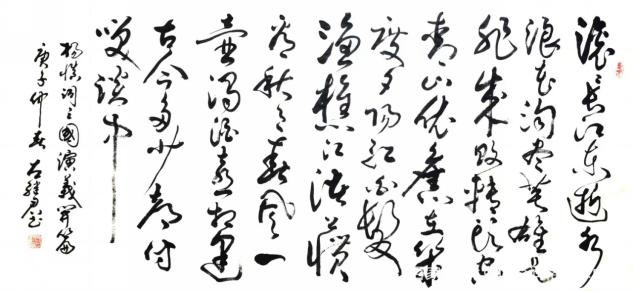 滚〻长江东逝水
浪花淘尽英雄是
非成败转头空
青山依舊在几
度夕阳红白髮
渔樵江渚上惯
看秋月春风一
壶浊酒喜相逢
古今多少都付
笑谈中
杨慎词三國演義开篇
庚子仲春